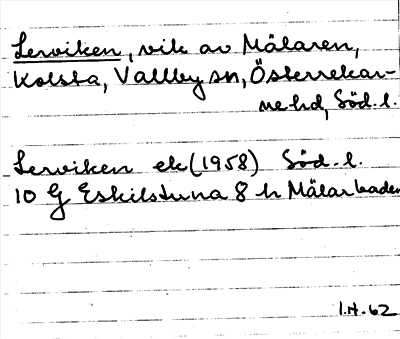 Lerviken, vik av Mälaren,
Kolsta, Vallby sn, Österrekar-
ne hd, Söd. l.
Lerviken ek (1958) Söd. l.
10 G Eskilstuna 8 h Mälarbaden
I.H. 62